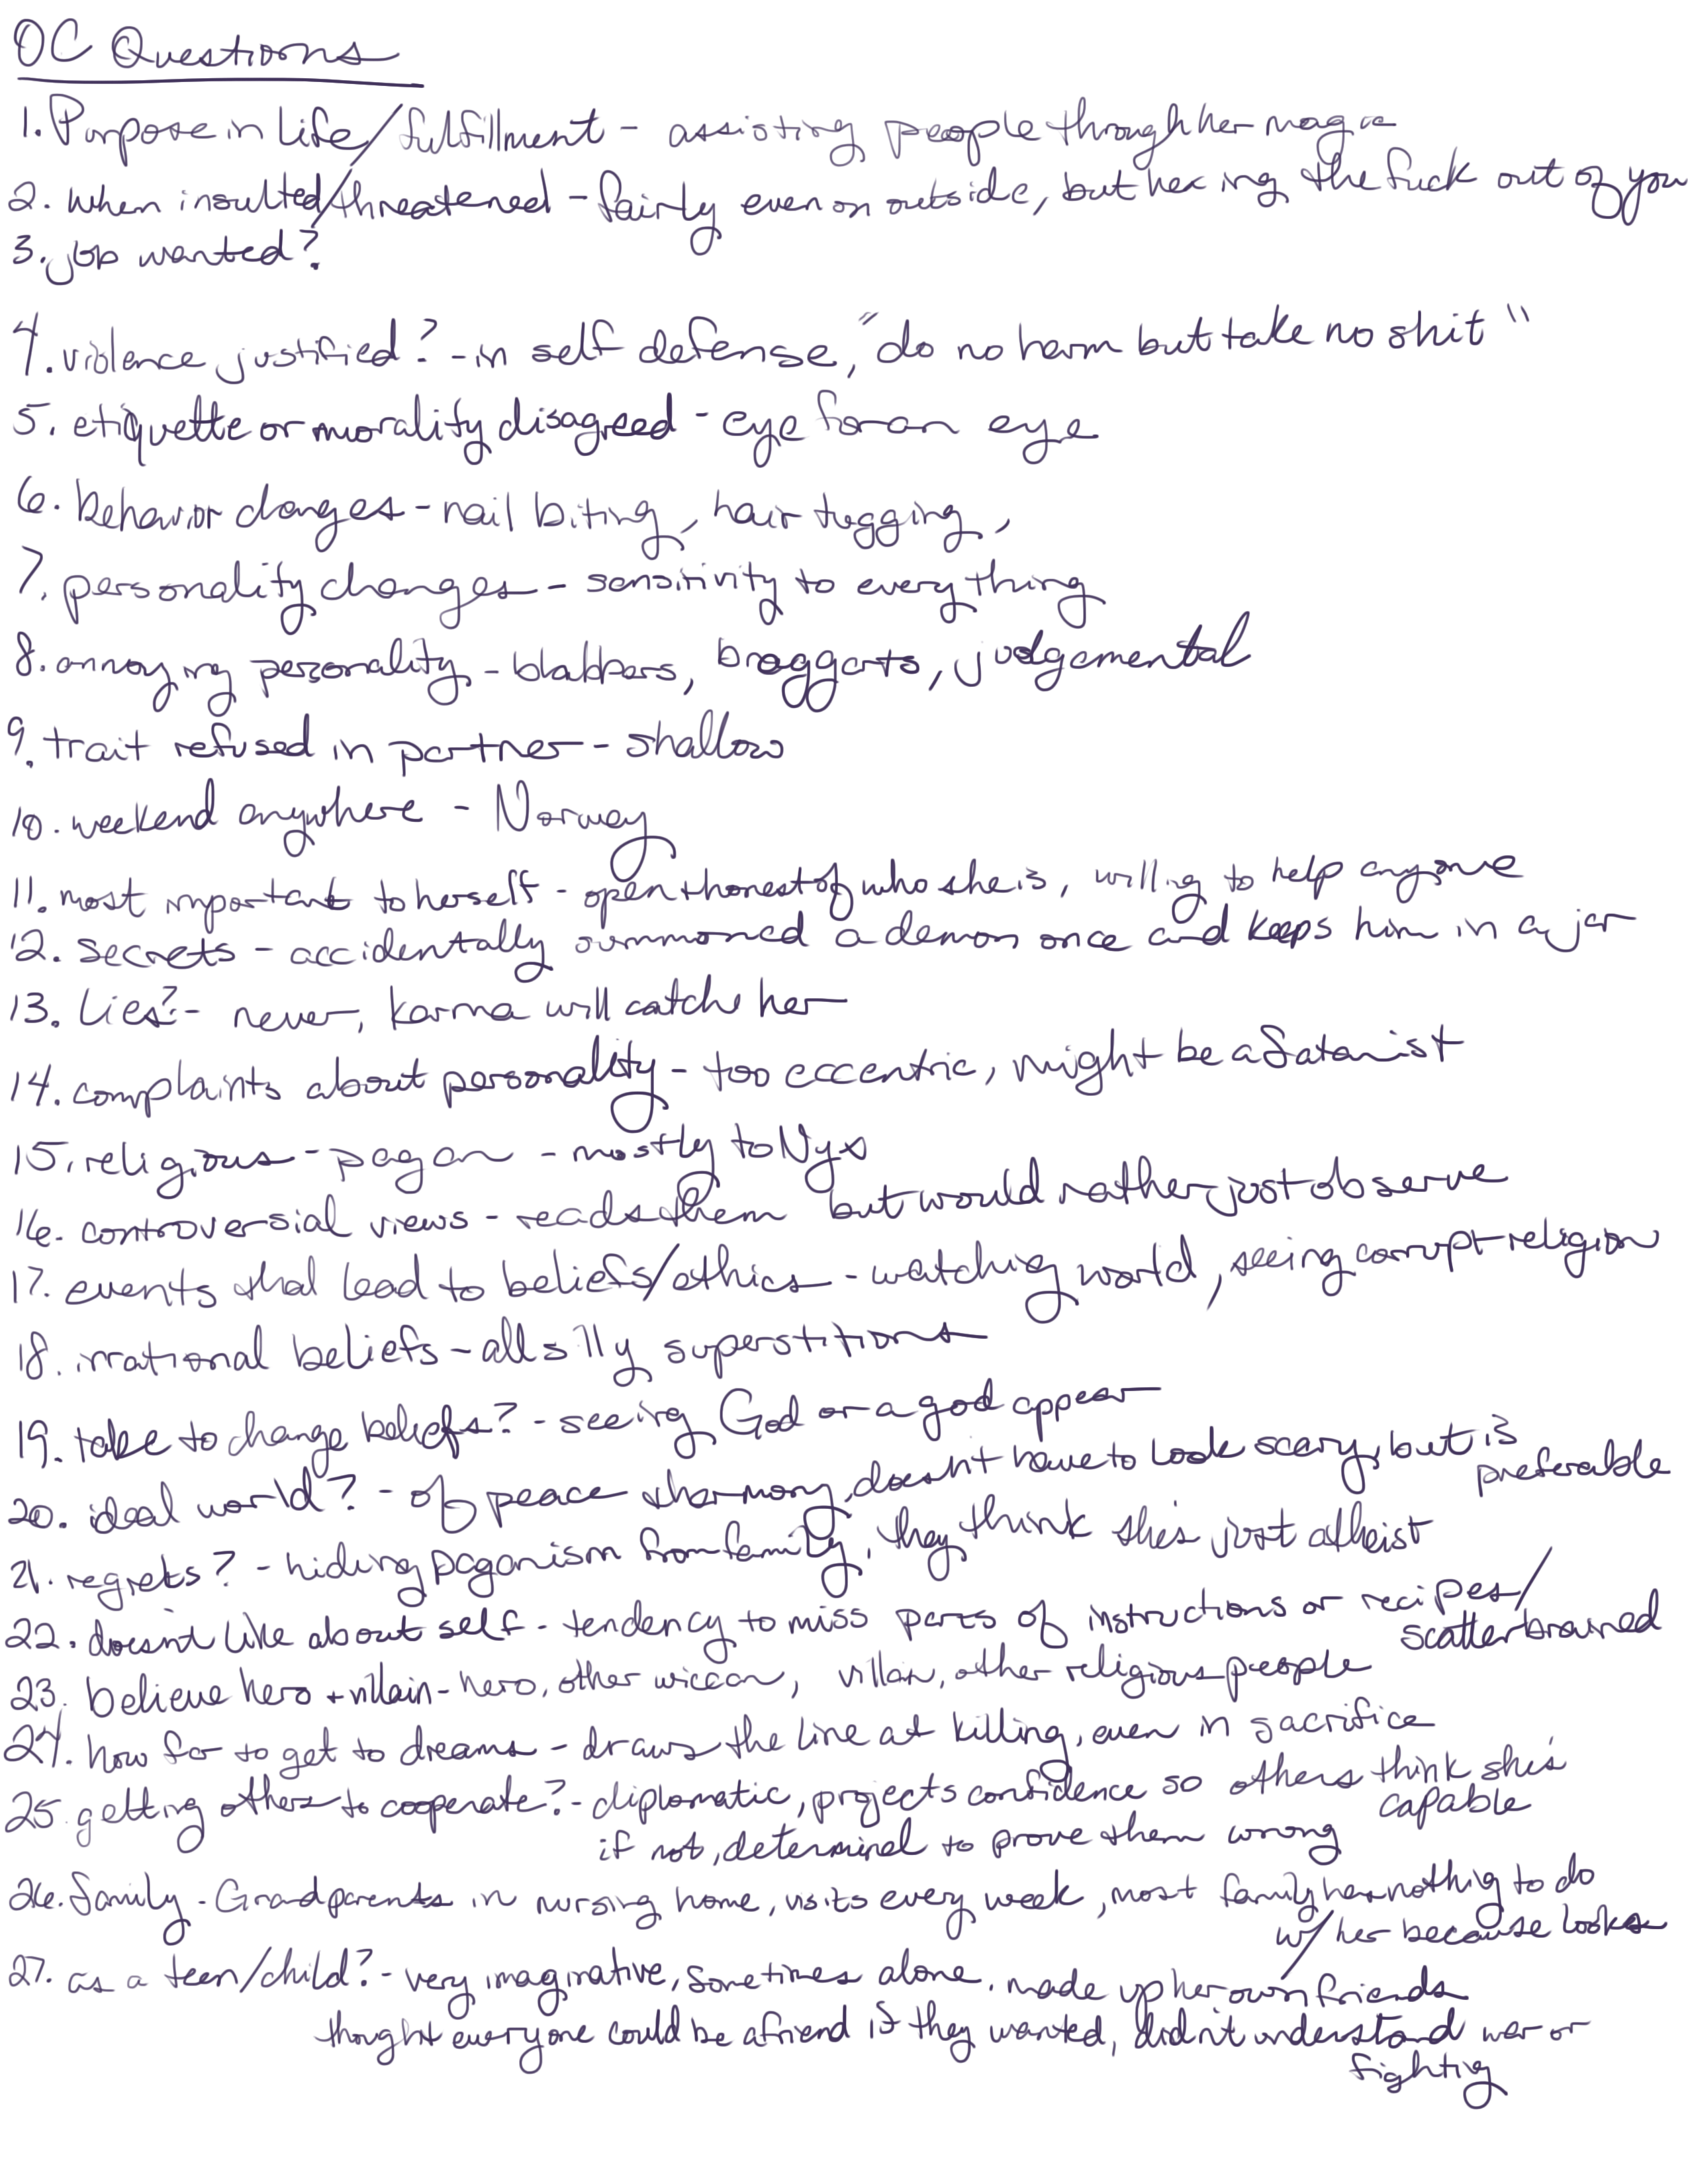 OC Questions
1. Purpose in life/fulfillment - assisting people through her magic
2. when insulted/threatened - fairly even on outside, but hexing the fuck out of you
3. job wanted?
4. violence justified? - in self defense, "do no harm but take no shit"
5. etiquette or morality disagreed - eye for an eye
6. behavior changes - nail biting, hair tugging,
7. personality changes - sensitivity to everything
8. annoying personality - blabbers, braggarts, judgemental
9. trait refused in partner - shallow
10. weekend anywhere - Norway
11. most important to herself - open + honest of who she is, willing to help anyone
12. secrets - accidentally summoned a demon once and keeps him in a jar
13. Lies? - never, karma will catch her
14. complaints about personality - too eccentric, might be a Satanist
15. religious - pagan - mostly to Nyx
16. controversial views - reads them but would rather just observe
17. events that lead to beliefs/ethics - watching world, seeing corrupt religion
18. irrational beliefs - all silly superstitions
19. take to change beliefs? - seeing God or a god appear
20. ideal world? - of peace + harmony, doesn't have to look scary, but is
preferable
21. regrets? - hiding paganism from family, they think she's just atheist
22. doesn't like about self - tendency to miss parts of instructions or recipes/
scatterbrained
23. believe hero + villain - hero, other wiccan, villain, other religious people
24. how far to get to dreams - draws the line at killing, even in sacrifice
25. getting others to cooperate? - diplomatic, projects confidence so others think she's
capable
if not, determined to prove them wrong
26. family - Grandparents in nursing home, visits every week, most family has nothing to do
w/ her because looks
27. as a teen/child? - very imaginative, sometimes alone, made up her own friends
thought everyone could be a friend if they wanted, didn't understand war or
fighting